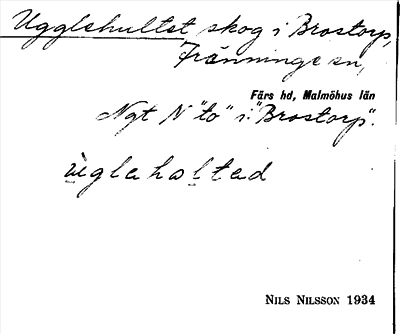 Ugglehultet skog i Brostorp,
Tranninge sn,
Färs hd, Malmöhus län
Ngt N "to" i "Brostorp".
ùglaholtad
NILS NILSSON 1934